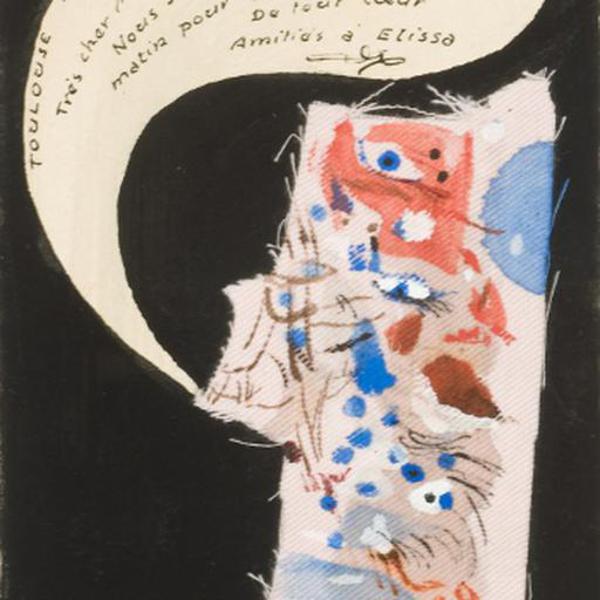 TOULOUSE
Très cher
Nous
matin pour
De tout cœur
Amitiés à Elissa